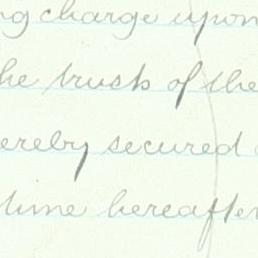 ng charge upon
he trusts of the
ereby secured
time hereafter